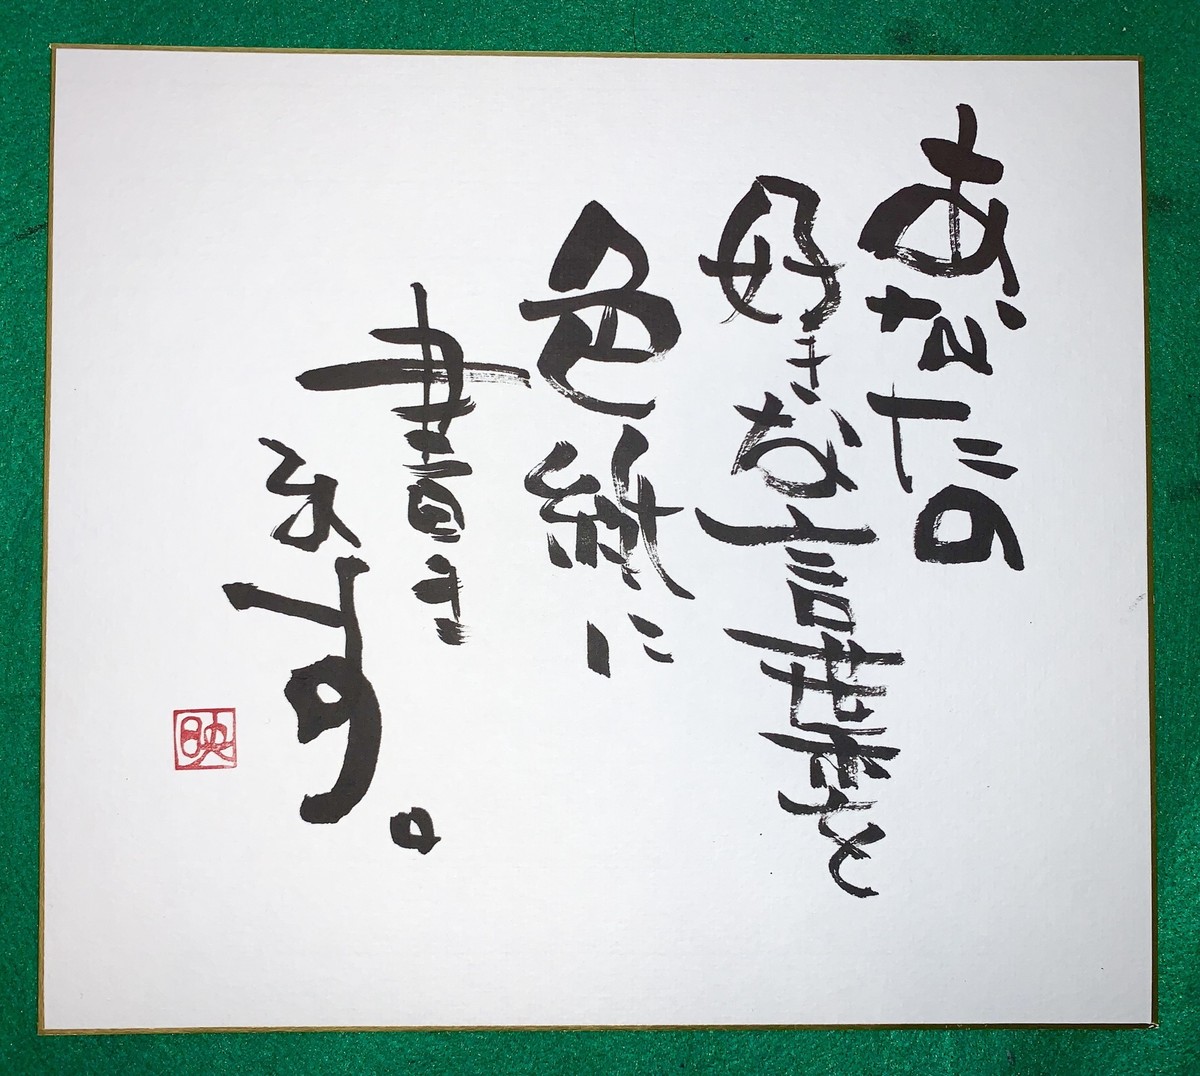 あなたの
好きな言葉を
色紙に
書き
ます。
映